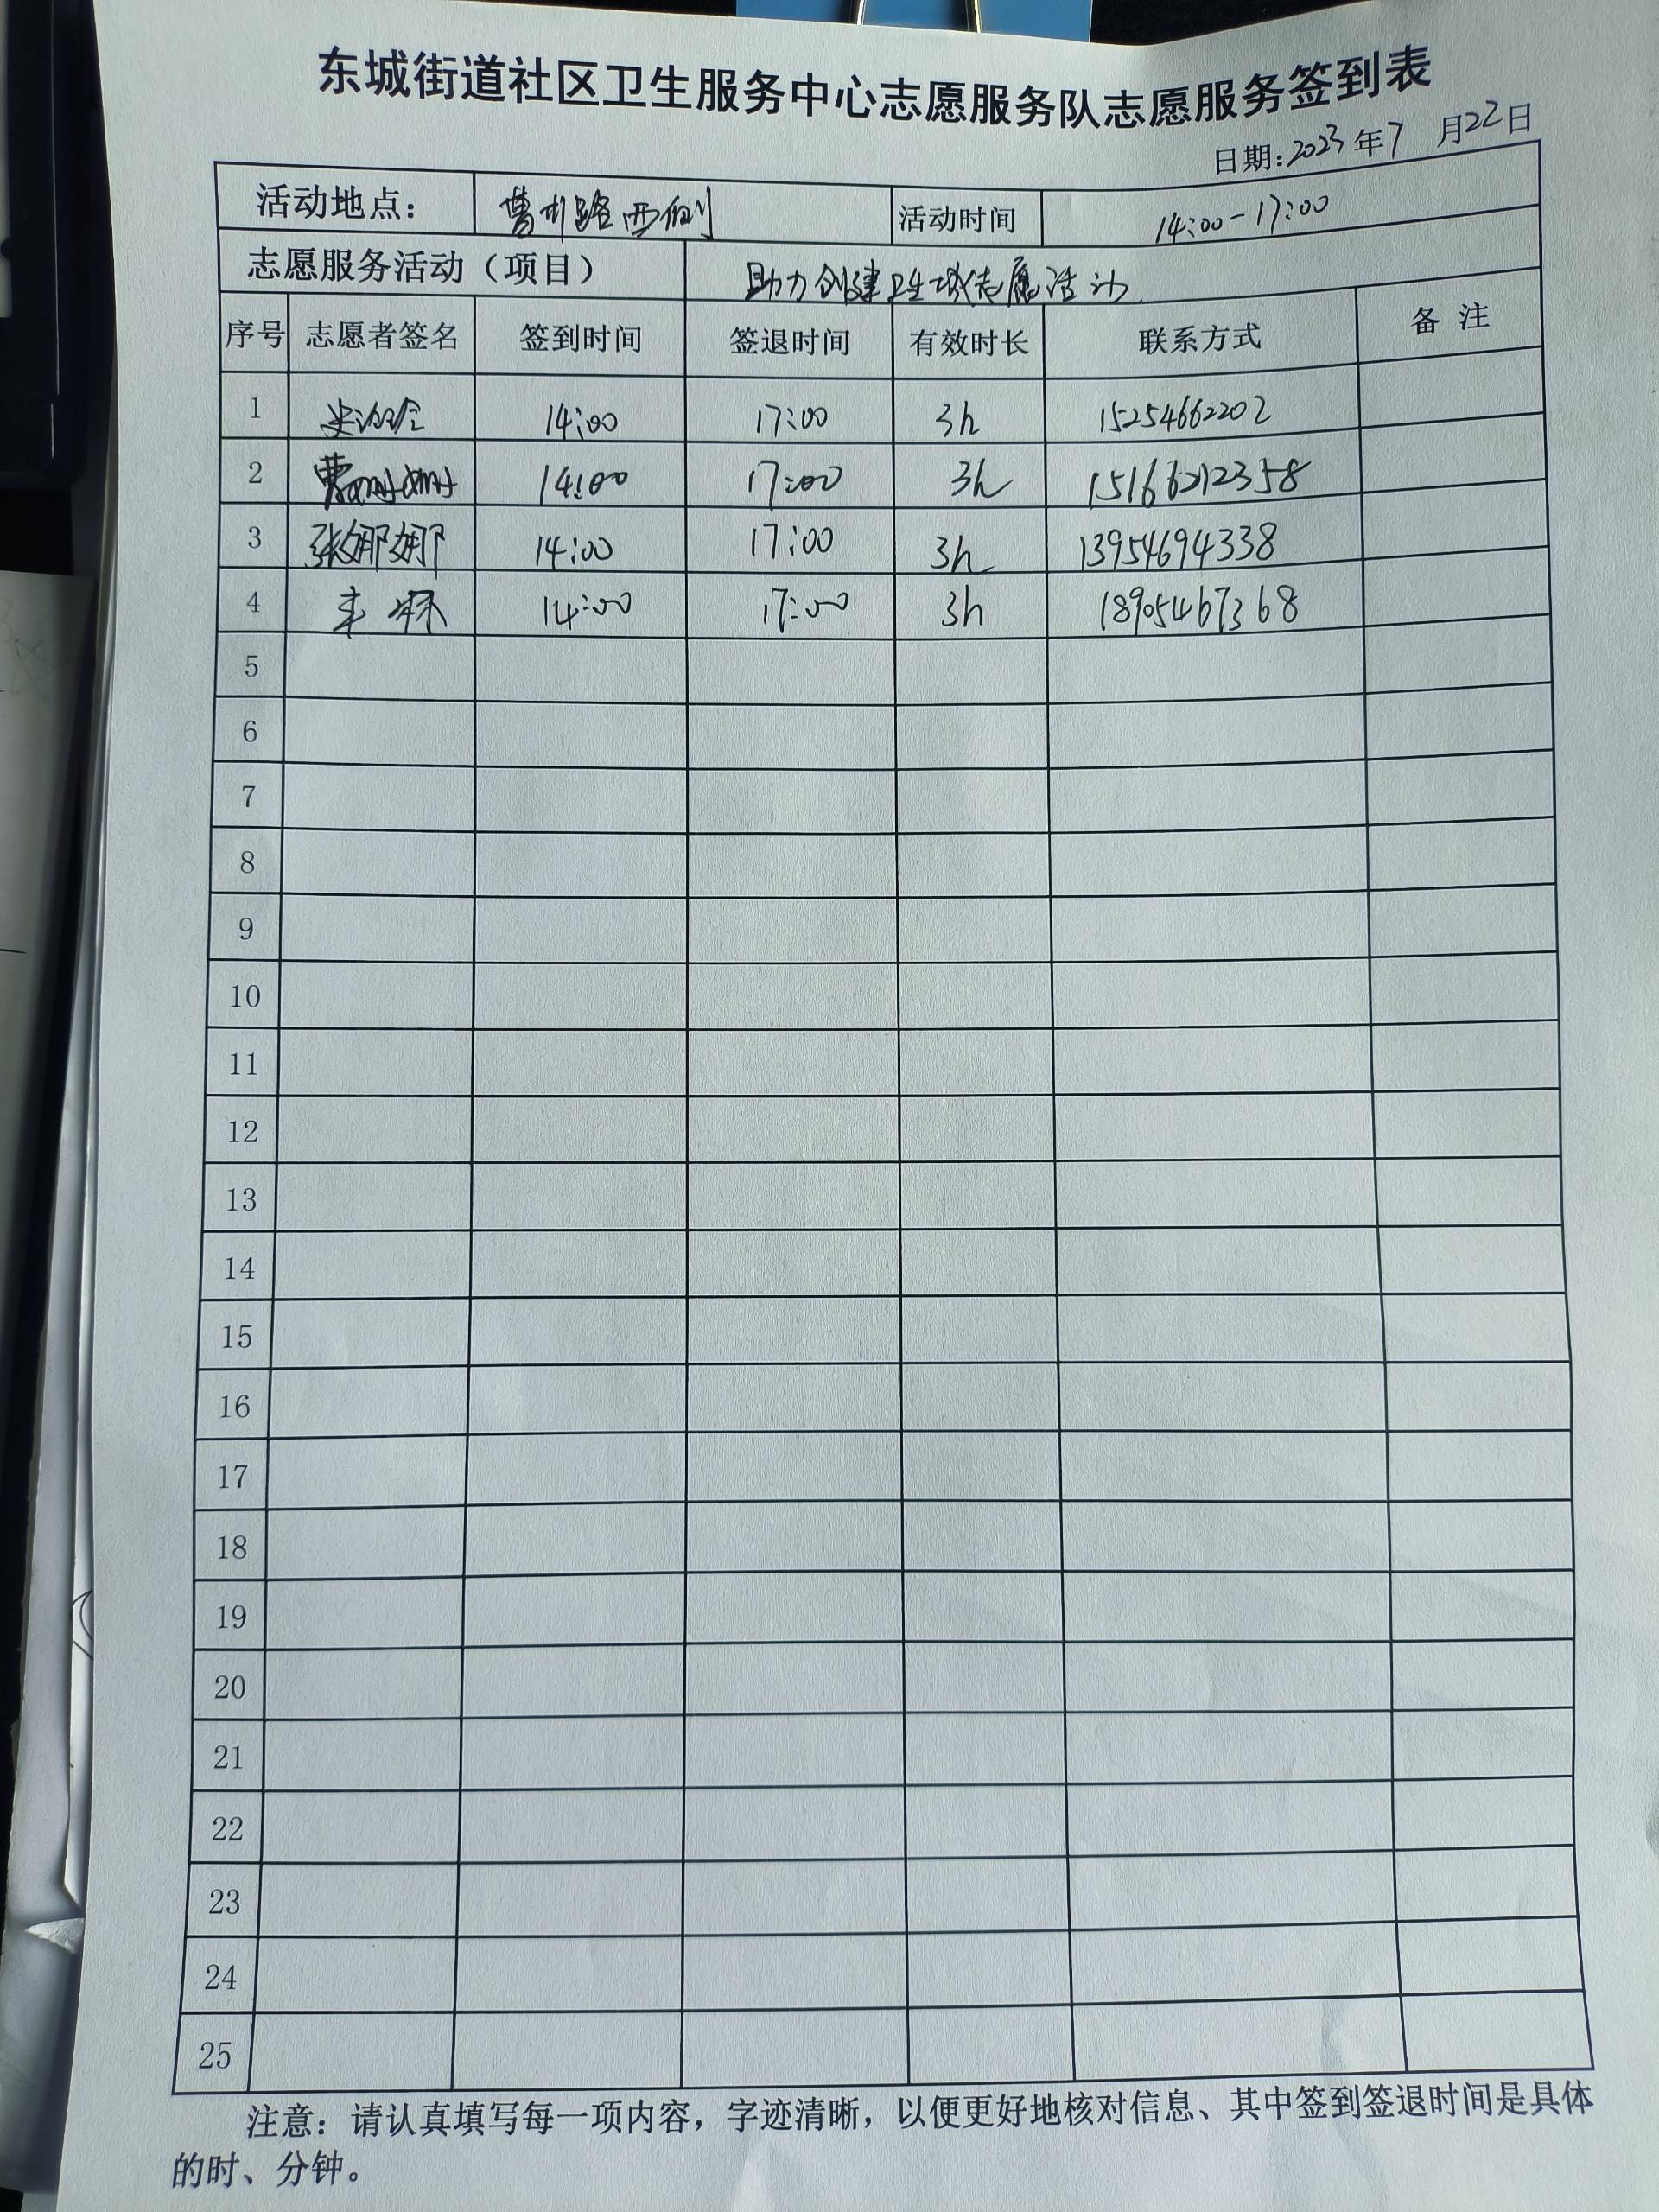 东城街道社区卫生服务中心志愿服务队志愿服务签到表
日期:2023年7 月22日
活动地点: 曹州路西侧 活动时间 14:00-17:00
志愿服务活动（项目） 助力创建卫生城志愿活动
序号 志愿者签名 签到时间 签退时间 有效时长 联系方式 备 注
1 14:00 17:00 3h 15254662202
2 曹姗姗 14:00 17:00 3h 15166212358
3 张娜娜 14:00 17:00 3h 13954694338
4 14:00 17:00 3h 18905467368
5
6
7
8
9
10
11
12
13
14
15
16
17
18
19
20
21
22
23
24
25
注意：请认真填写每一项内容，字迹清晰，以便更好地核对信息、其中签到签退时间是具体
的时、分钟。